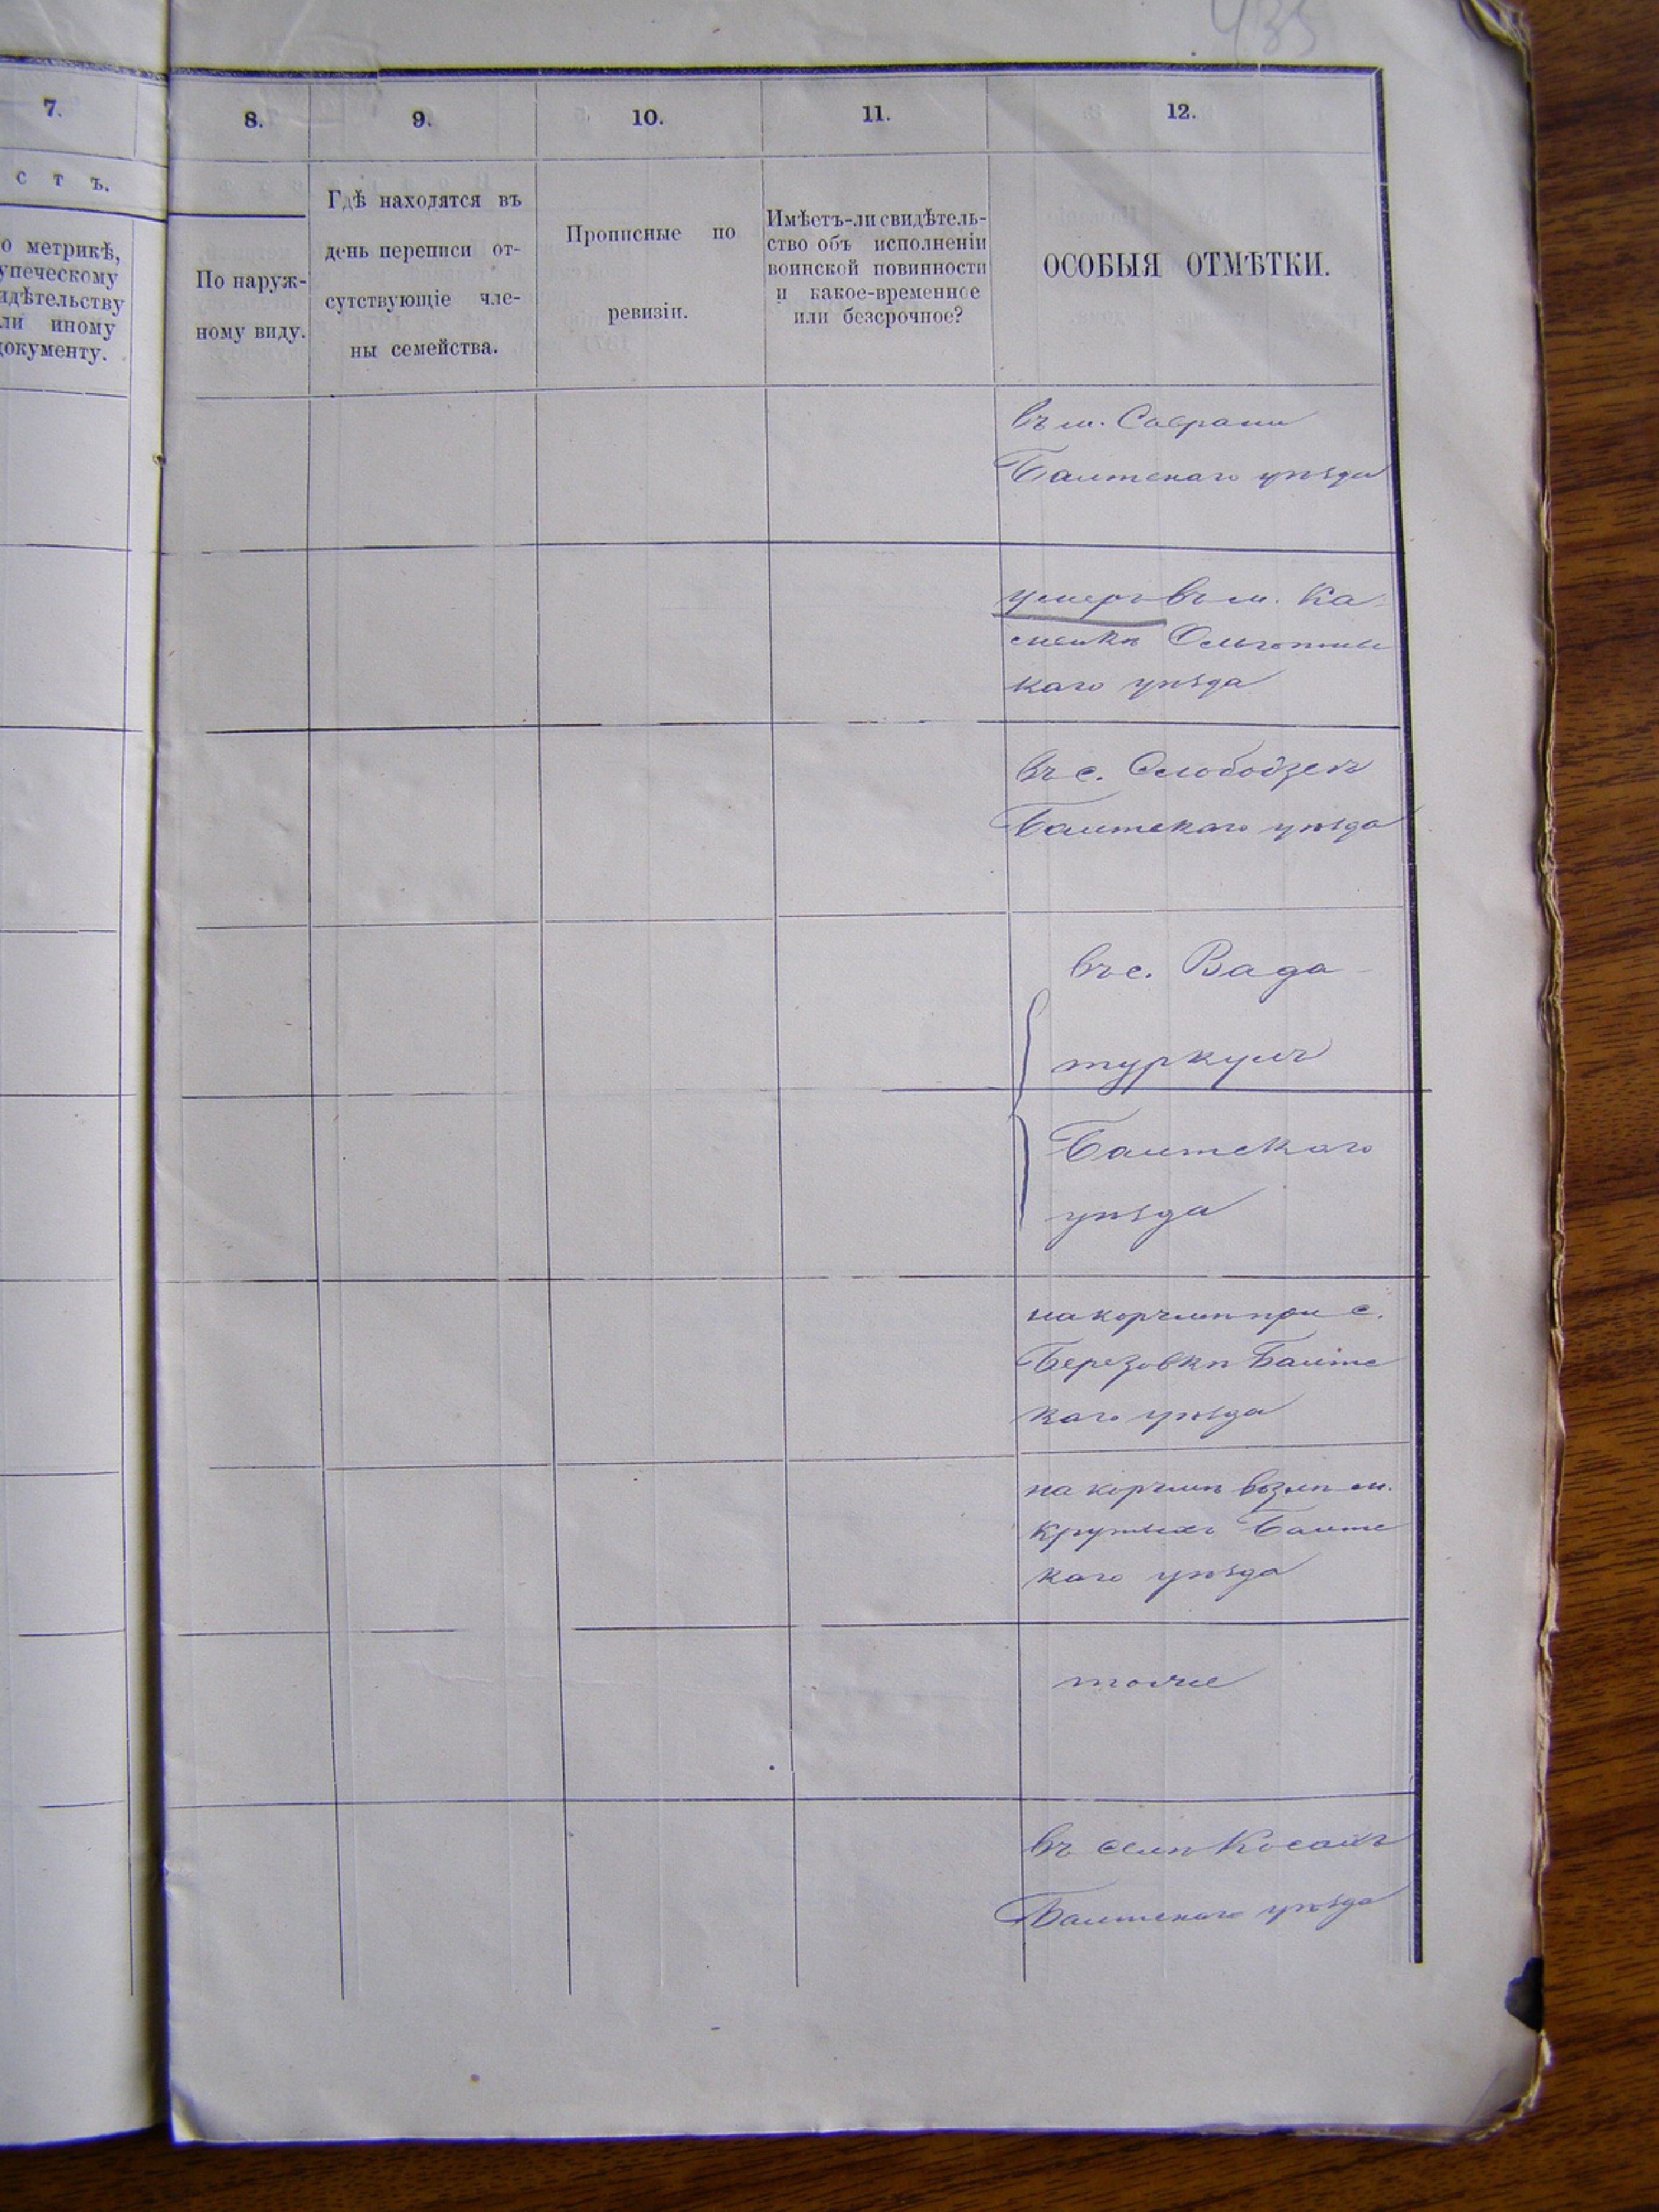 435
7.
8.
9.
10.
11.
12.
с т ъ.
о метрикѣ,
упеческому
идѣтельству
ли иному
документу.
По наруж-
ному виду.
Гдѣ находятся въ
день переписи от-
сутствующіе чле-
ны семейства.
Прописные по
ревизіи.
Имѣетъ-ли свидѣтель-
ство объ исполненіи
воинской повинности
и какое-временное
или безсрочное?
ОСОБЫЯ ОТМѢТКИ.
въ м. Саврани
Балтскаго уѣзда
умеръ въ м. Ка-
менкѣ Ольгопольс
каго уѣзда
въ с. Слободзеѣ
Балтскаго уѣзда
въ с. Вада-
туркулъ
Балтскаго
уѣзда
на корчмѣ при с.
Березовкѣ Балтс
каго уѣзда
на корчмѣ возлѣ м.
Крутыхъ Балтс
каго уѣзда
тоже
въ селѣ Косахъ
Балтскаго уѣзда